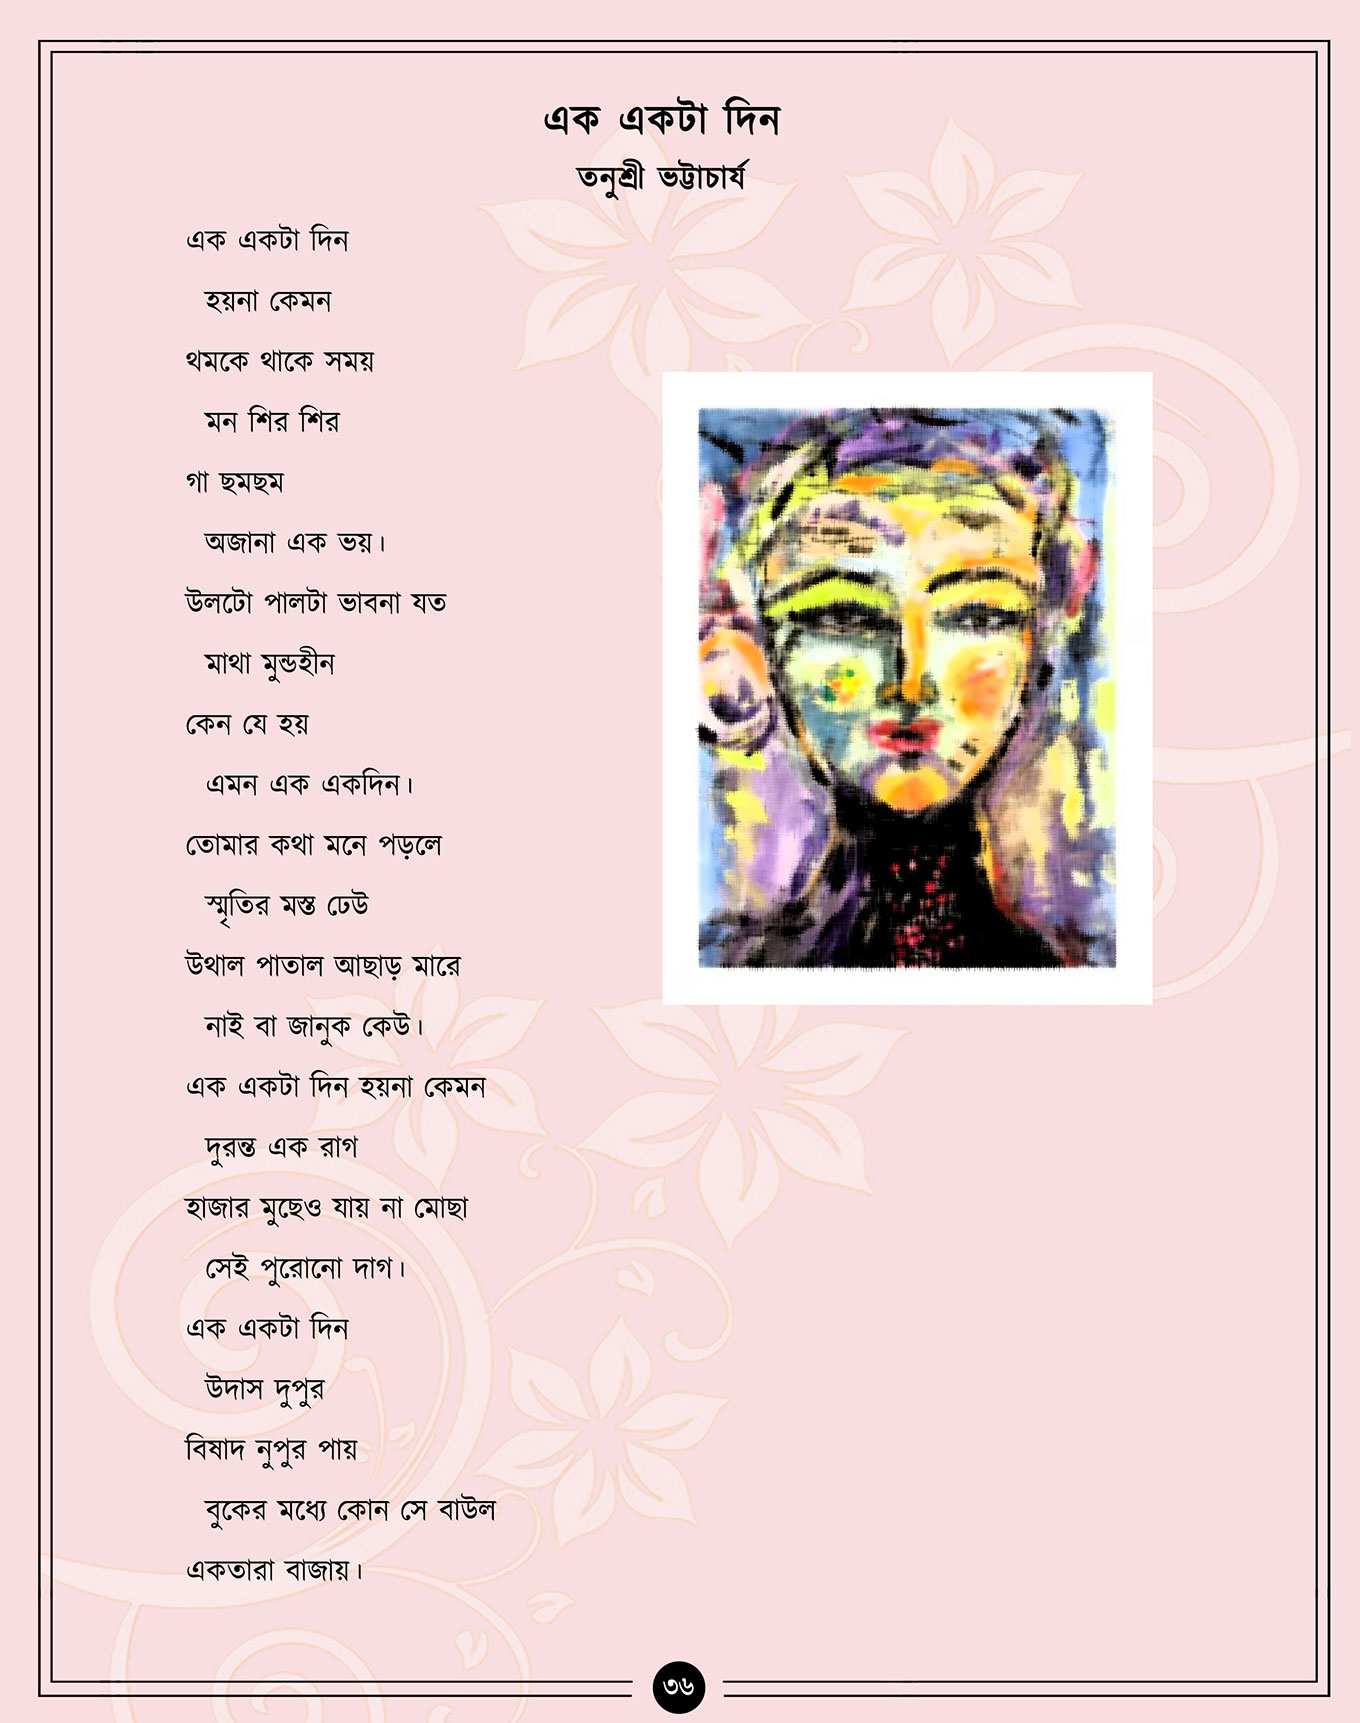 এক একটা দিন
তনুশ্রী ভট্টাচার্য
এক একটা দিন
হয়না কেমন
থমকে থাকে সময়
মন শির শির
গা ছমছম
অজানা এক ভয়।
উলটো পালটা ভাবনা যত
মাথা মুন্ডহীন
কেন যে হয়
এমন এক একদিন।
তোমার কথা মনে পড়লে
স্মৃতির মস্ত ঢেউ
উথাল পাতাল আছাড় মারে
নাই বা জানুক কেউ।
এক একটা দিন হয়না কেমন
দুরন্ত এক রাগ
হাজার মুছেও যায় না মোছা
সেই পুরোনো দাগ।
এক একটা দিন
উদাস দুপুর
বিষাদ নুপুর পায়
বুকের মধ্যে কোন সে বাউল
একতারা বাজায়।
৩৬